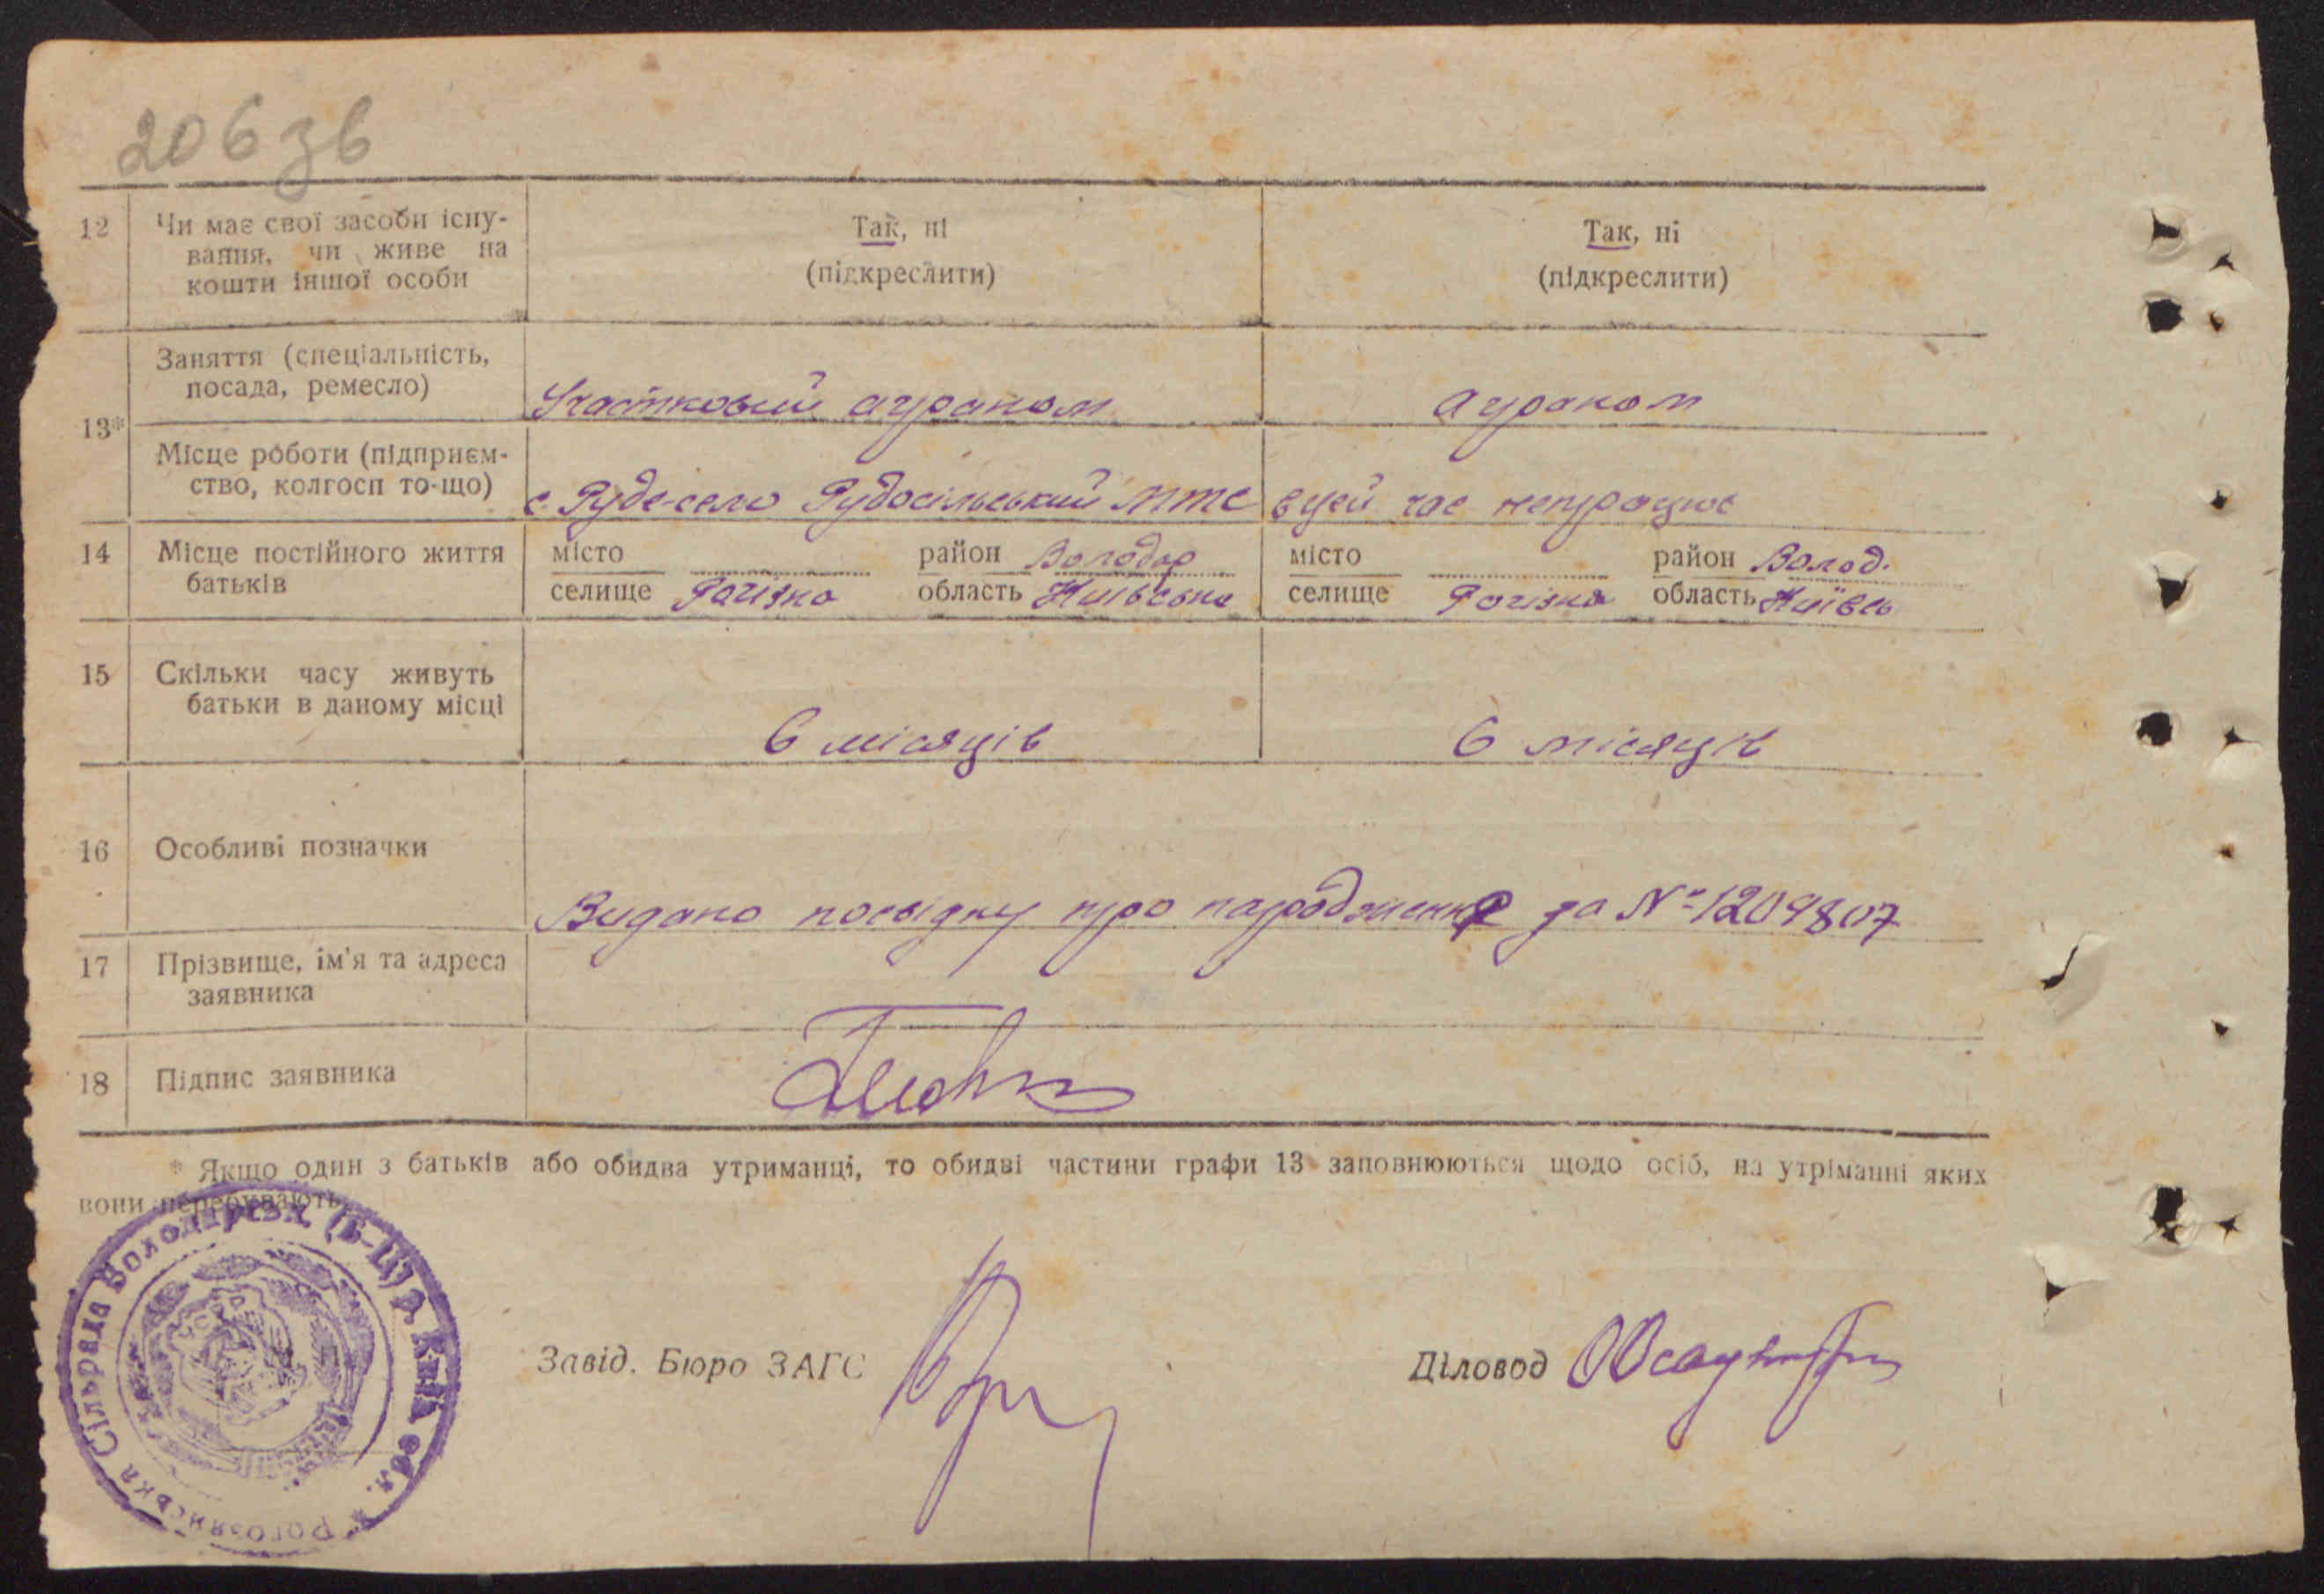 206 зв
12 Чи має свої засоби існу- Так, ні Так, ні
вання, чи живе на (підкреслити) (підкреслити)
кошти іншої особи
13* Заняття (спеціальність,
посада, ремесло) Участковий агроном агроном
Місце роботи (підприєм-
ство, колгосп то-що) с. Руде-село Рудосільський МТС в цей час непрацює
14 Місце постійного життя місто район Володар місто район Волод.
батьків селище Рогізна область Київська селище Рогізна область Київсь
15 Скільки часу живуть
батьки в даному місці 6 місяців 6 місяців
16 Особливі позначки
Видано посвідку про народження за № 1209807
17 Прізвище, ім'я та адреса
заявника
18 Підпис заявника
* Якщо один з батьків або обидва утриманці, то обидві частини графи 13 заповнюються щодо осіб, на утріманні яких
вони перебувають.
Завід. Бюро ЗАГС Діловод
Рогозянська Сільрада Володарськ. (Б-Ц) р. Київ. обл. *
УСРР